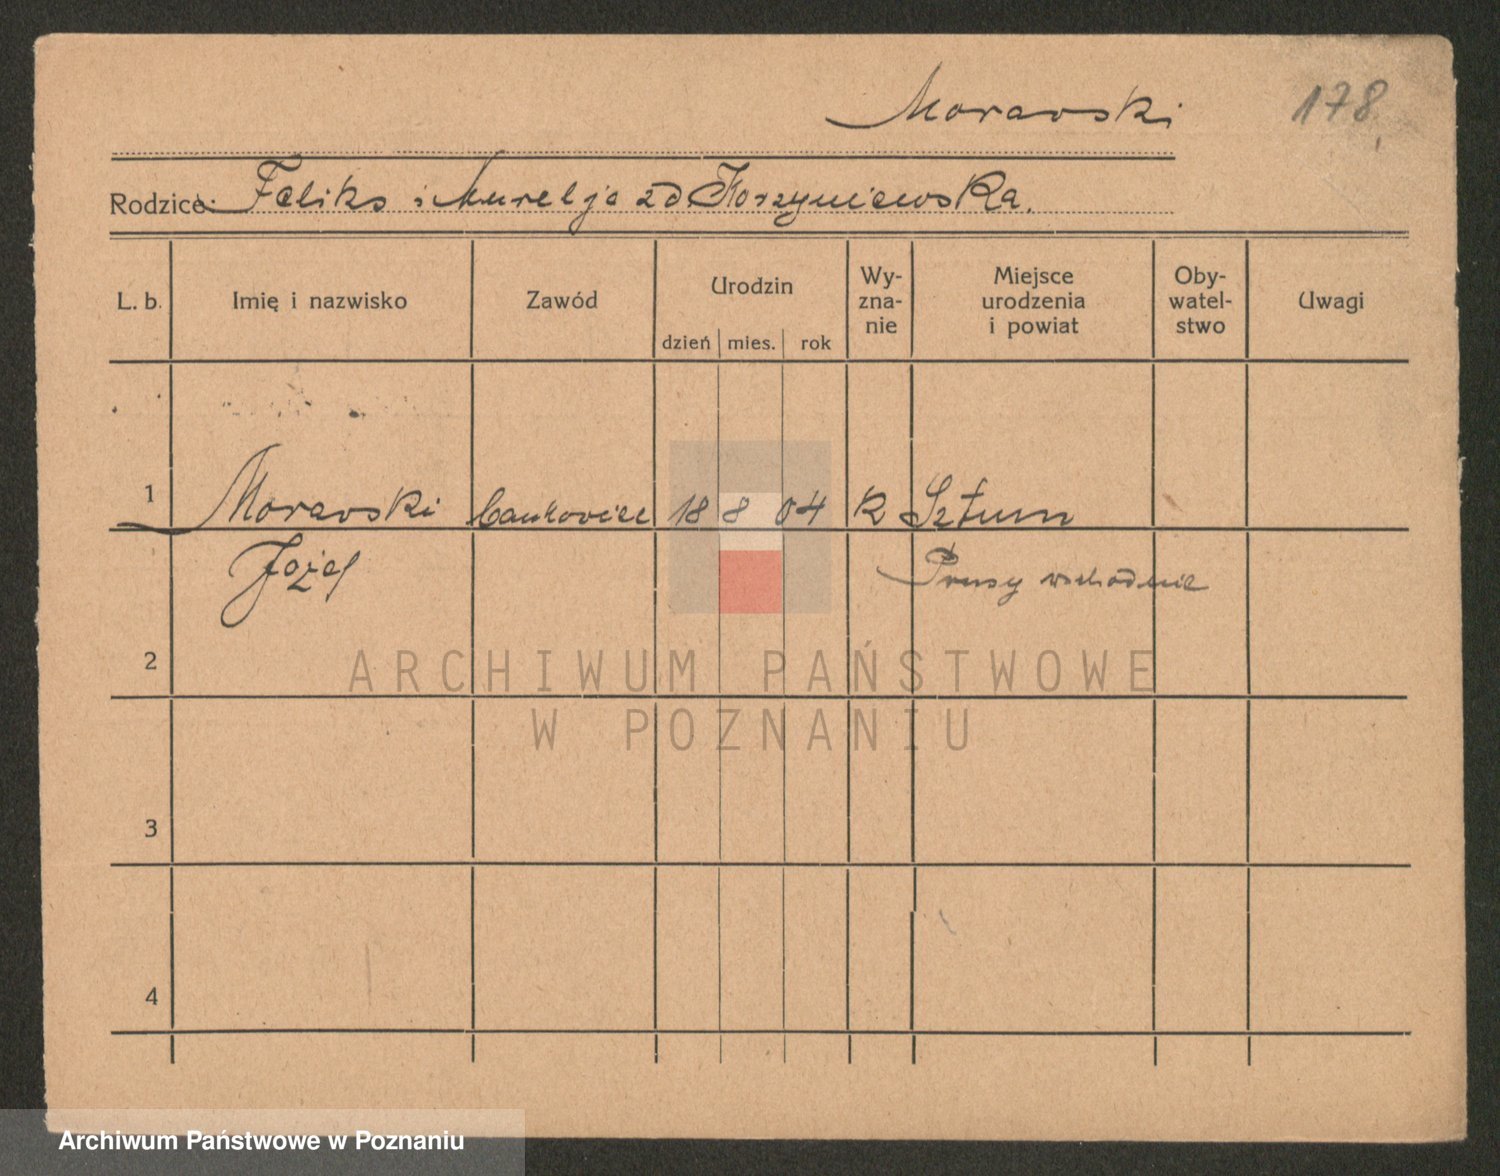 Moravski
178
Rodzice: Feliks i Aurelja zd Korzyniewska.
L. b.
Imię i nazwisko
Zawód
Urodzin
dzień mies. rok
Wy-
zna-
nie
Miejsce
urodzenia
i powiat
Oby-
watel-
stwo
Uwagi
1 Moravski bankoviec 18 8 04 R Sztum
Józef Prusy wschodnie
2
ARCHIWUM PAŃSTWOWE
W POZNANIU
3
4
Archiwum Państwowe w Poznaniu